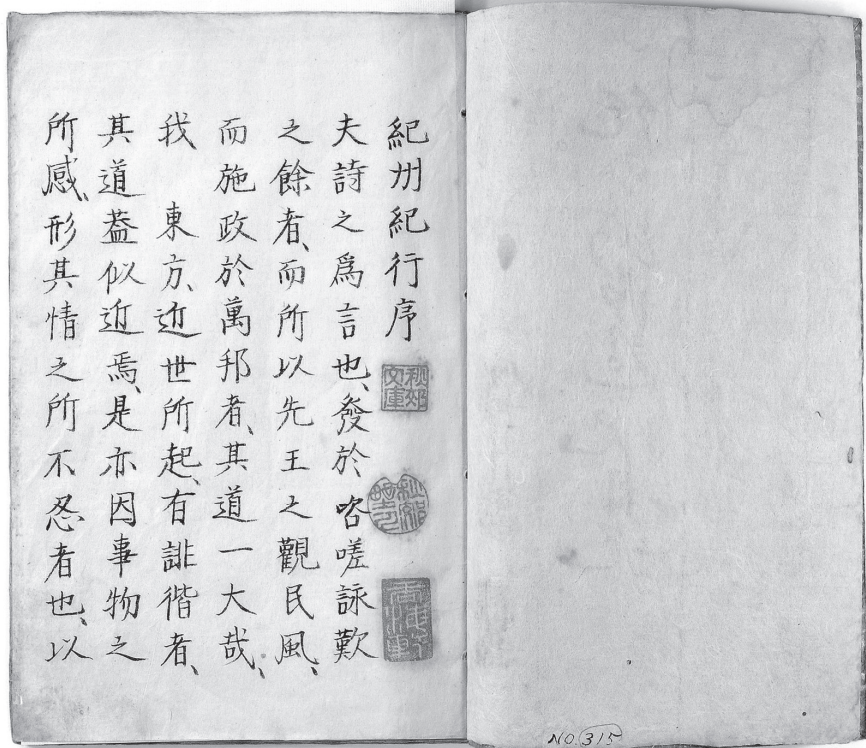 紀州紀行序
夫詩之爲言也、發於咨嗟詠歎
之餘者、而所以先王之觀民風、
而施政於萬邦者、其道一大哉、
我　東方、近世所起、有誹偕者、
其道葢似近焉、是亦因事物之
所感、形其情之所不忍者也、以
秋郊
文庫
NO.315